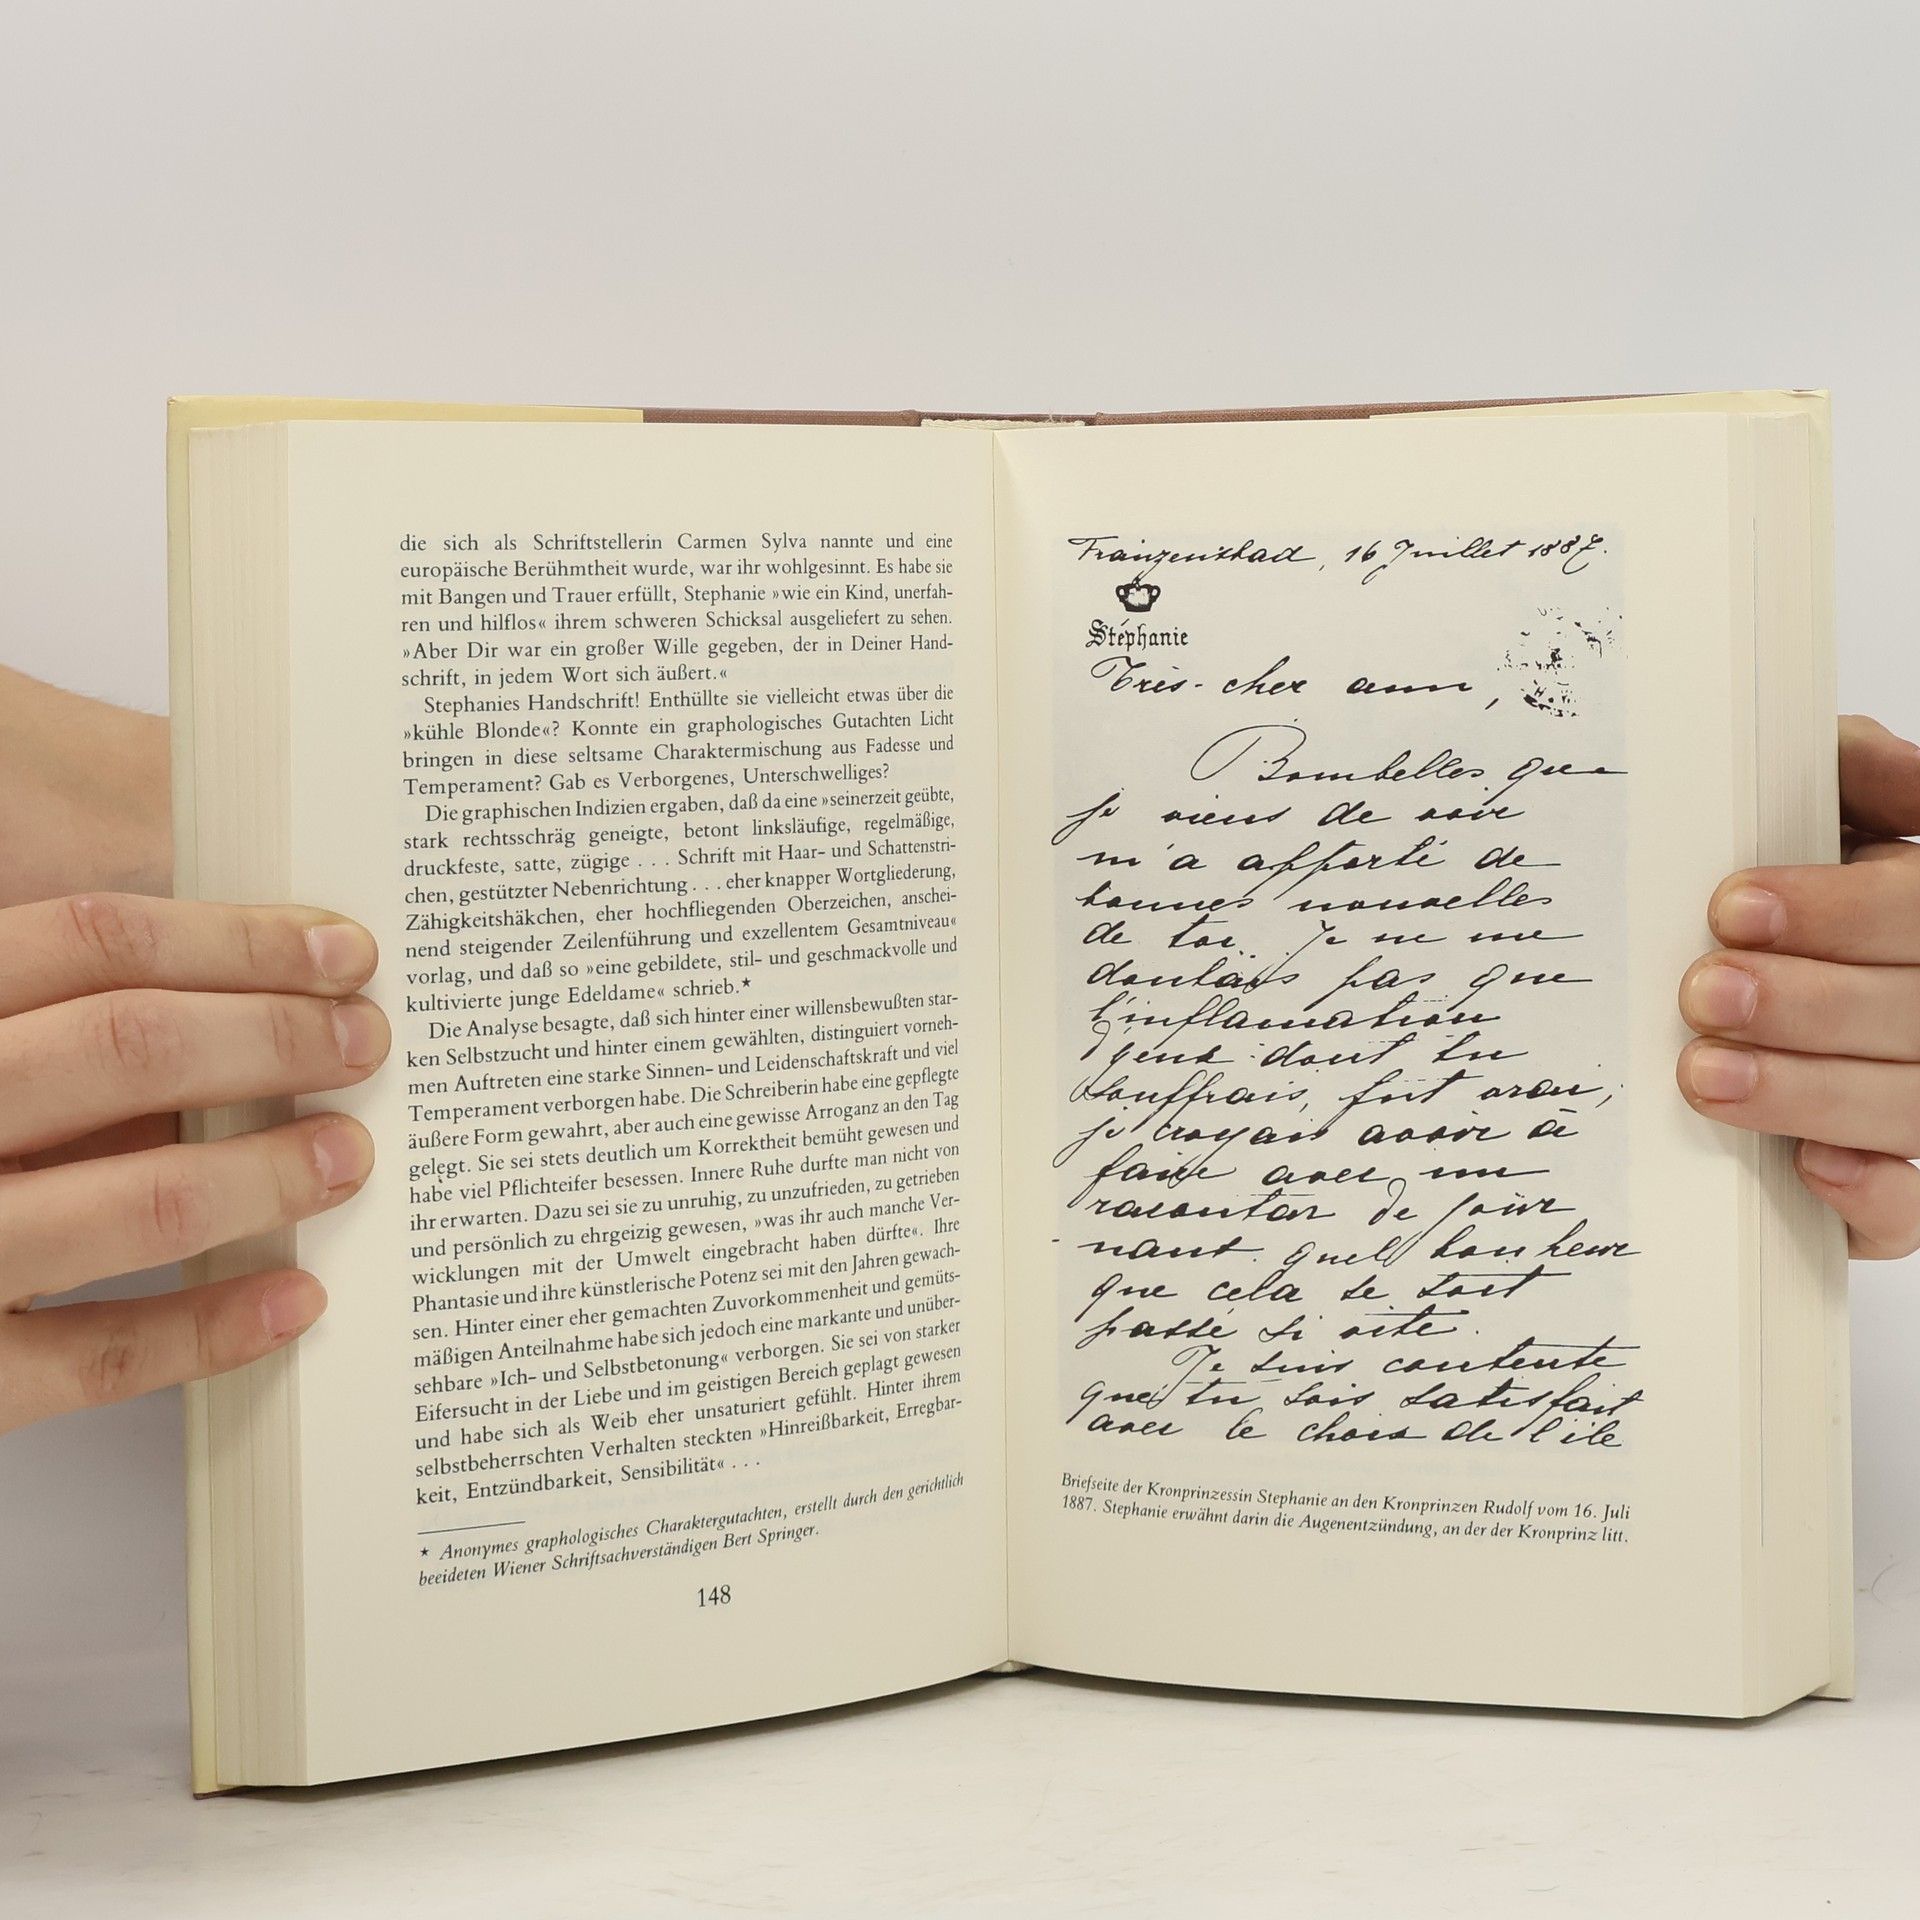 die sich als Schriftstellerin Carmen Sylva nannte und eine
europäische Berühmtheit wurde, war ihr wohlgesinnt. Es habe sie
mit Bangen und Trauer erfüllt, Stephanie »wie ein Kind, unerfah-
ren und hilflos« ihrem schweren Schicksal ausgeliefert zu sehen.
»Aber Dir war ein großer Wille gegeben, der in Deiner Hand-
schrift, in jedem Wort sich äußert.«
Stephanies Handschrift! Enthüllte sie vielleicht etwas über die
»kühle Blonde«? Konnte ein graphologisches Gutachten Licht
bringen in diese seltsame Charaktermischung aus Fadesse und
Temperament? Gab es Verborgenes, Unterschwelliges?
Die graphischen Indizien ergaben, daß da eine »seinerzeit geübte,
stark rechtsschräg geneigte, betont linksläufige, regelmäßige,
druckfeste, satte, zügige . . . Schrift mit Haar- und Schattenstri-
chen, gestützter Nebenrichtung . . . eher knapper Wortgliederung,
Zähigkeitshäkchen, eher hochfliegenden Oberzeichen, anschei-
nend steigender Zeilenführung und exzellentem Gesamtniveau«
vorlag, und daß so »eine gebildete, stil- und geschmackvolle und
kultivierte junge Edeldame« schrieb.*
Die Analyse besagte, daß sich hinter einer willensbewußten star-
ken Selbstzucht und hinter einem gewählten, distinguiert vorneh-
men Auftreten eine starke Sinnen- und Leidenschaftskraft und viel
Temperament verborgen habe. Die Schreiberin habe eine gepflegte
äußere Form gewahrt, aber auch eine gewisse Arroganz an den Tag
gelegt. Sie sei stets deutlich um Korrektheit bemüht gewesen und
habe viel Pflichteifer besessen. Innere Ruhe durfte man nicht von
ihr erwarten. Dazu sei sie zu unruhig, zu unzufrieden, zu getrieben
und persönlich zu ehrgeizig gewesen, »was ihr auch manche Ver-
wicklungen mit der Umwelt eingebracht haben dürfte«. Ihre
Phantasie und ihre künstlerische Potenz sei mit den Jahren gewach-
sen. Hinter einer eher gemachten Zuvorkommenheit und gemüts-
mäßigen Anteilnahme habe sich jedoch eine markante und unüber-
sehbare »Ich- und Selbstbetonung« verborgen. Sie sei von starker
Eifersucht in der Liebe und im geistigen Bereich geplagt gewesen
und habe sich als Weib eher unsaturiert gefühlt. Hinter ihrem
selbstbeherrschten Verhalten steckten »Hinreißbarkeit, Erregbar-
keit, Entzündbarkeit, Sensibilität« . . .
* Anonymes graphologisches Charaktergutachten, erstellt durch den gerichtlich
beeideten Wiener Schriftsachverständigen Bert Springer.
148
Franzensbad, 16 Juillet 1887.
Stéphanie
Très-cher ami,
Bombelles que
je viens de voir
m'a apporté de
bonnes nouvelles
de toi. Je ne me
doutais pas que
l'inflamation
d'yeux dont tu
souffrais, fut vrai;
je croyais avoir à
faire avec un
racontar de jour
nant. quel bonheur
que cela se soit
passé si vite.
Je suis contente
que tu sois satisfait
avec le choix de l'ile
Briefseite der Kronprinzessin Stephanie an den Kronprinzen Rudolf vom 16. Juli
1887. Stephanie erwähnt darin die Augenentzündung, an der der Kronprinz litt.